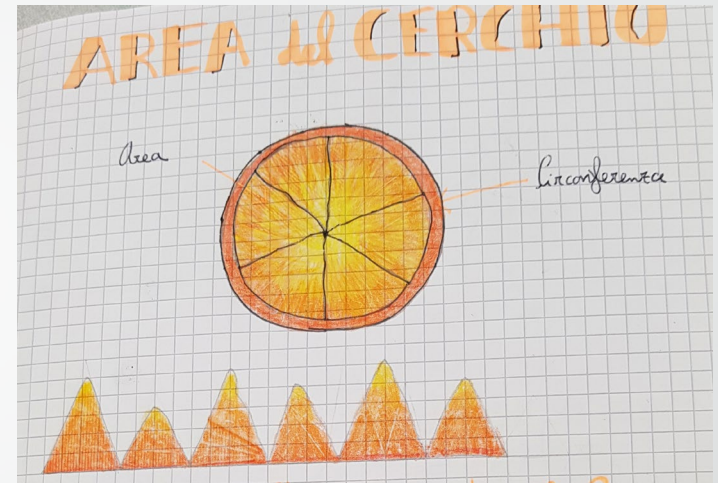 AREA del CERCHIO
Area
Circonferenza